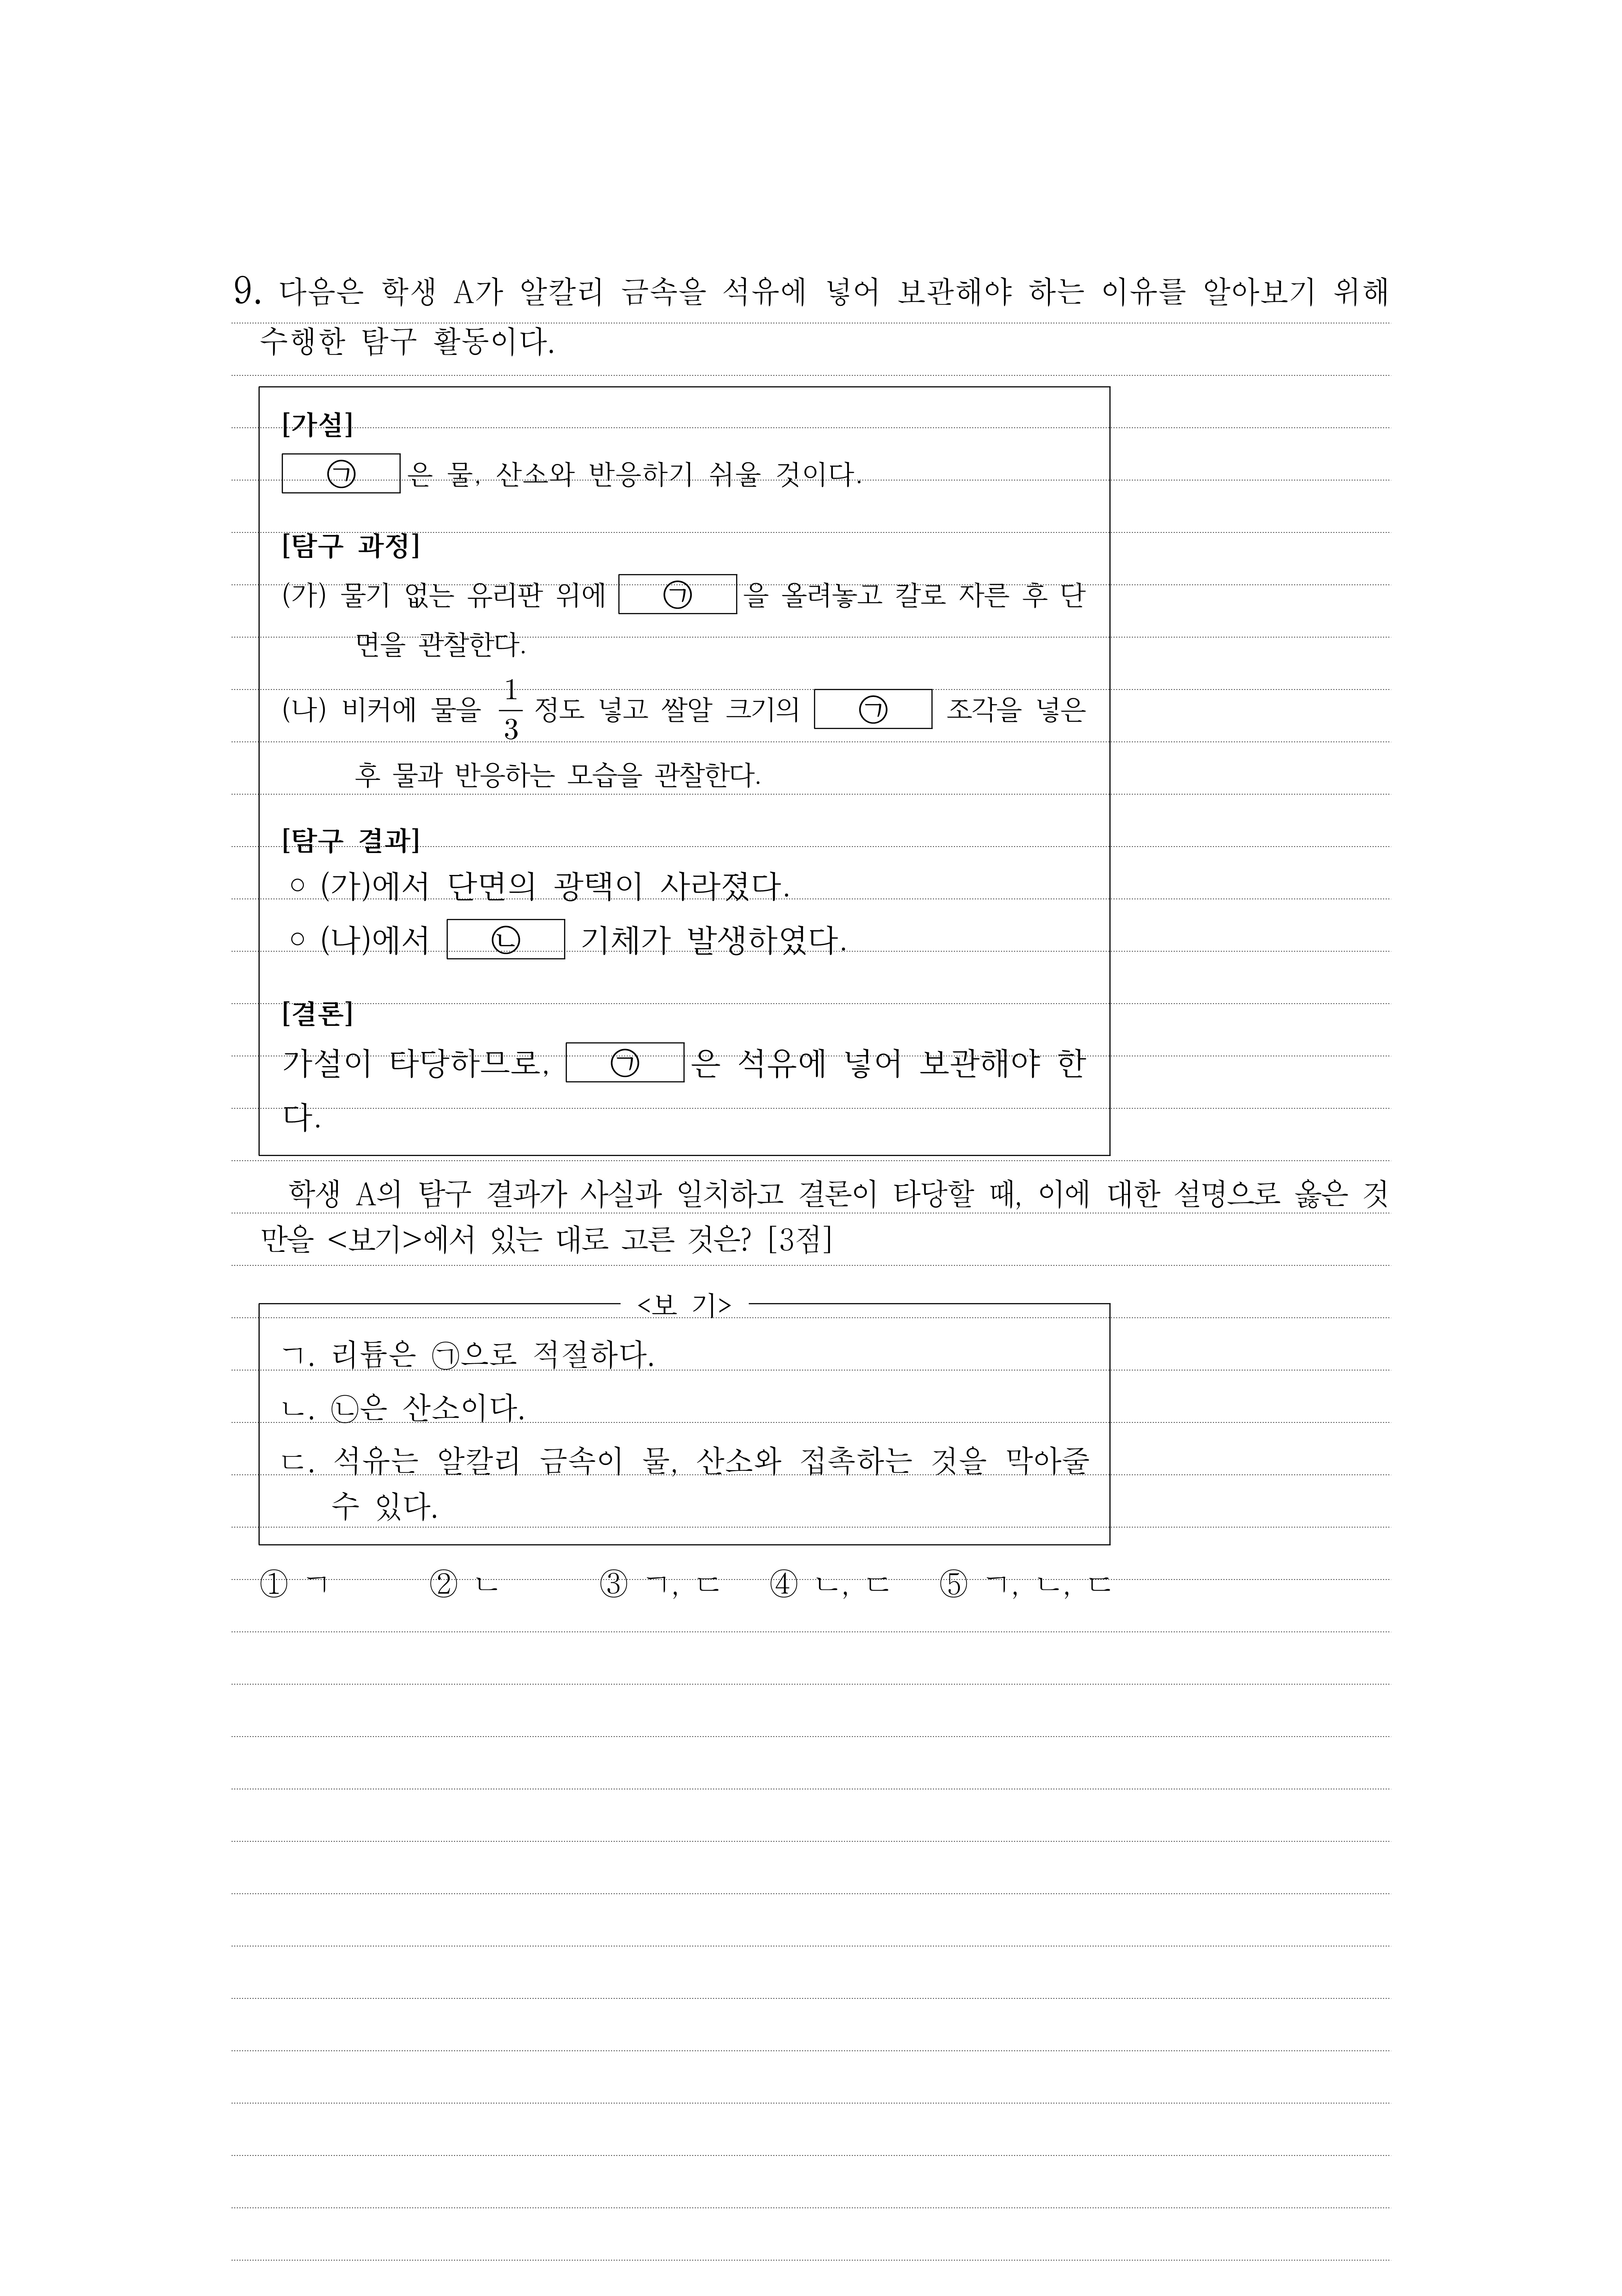 9. 다음은 학생 A가 알칼리 금속을 석유에 넣어 보관해야 하는 이유를 알아보기 위해
수행한 탐구 활동이다.
[가설]
㉠ 은 물, 산소와 반응하기 쉬울 것이다.
[탐구 과정]
(가) 물기 없는 유리판 위에 ㉠ 을 올려놓고 칼로 자른 후 단
면을 관찰한다.
(나) 비커에 물을 1/3 정도 넣고 쌀알 크기의 ㉠ 조각을 넣은
후 물과 반응하는 모습을 관찰한다.
[탐구 결과]
○ (가)에서 단면의 광택이 사라졌다.
○ (나)에서 ㉡ 기체가 발생하였다.
[결론]
가설이 타당하므로, ㉠ 은 석유에 넣어 보관해야 한
다.
학생 A의 탐구 결과가 사실과 일치하고 결론이 타당할 때, 이에 대한 설명으로 옳은 것
만을 <보기>에서 있는 대로 고른 것은? [3점]
<보 기>
ㄱ. 리튬은 ㉠으로 적절하다.
ㄴ. ㉡은 산소이다.
ㄷ. 석유는 알칼리 금속이 물, 산소와 접촉하는 것을 막아줄
수 있다.
① ㄱ ② ㄴ ③ ㄱ, ㄷ ④ ㄴ, ㄷ ⑤ ㄱ, ㄴ, ㄷ